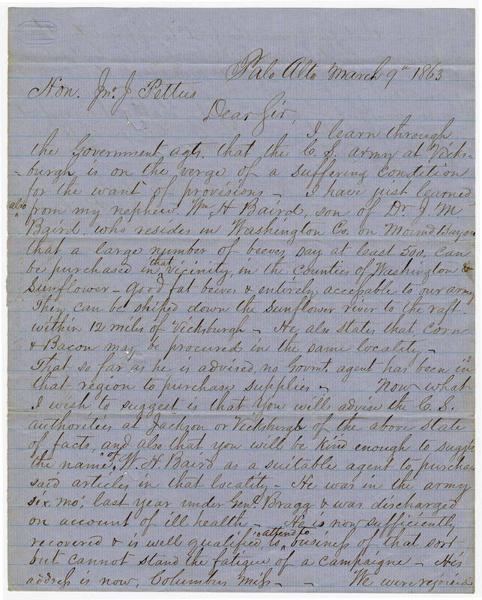 Palo Alto March 9th 1863
Hon. Jno. J Pettus
Dear Sir,
I learn through
the Government agts, that the C. S. army at Vicks-
burgh is on the verge of a suffering condition
for the want of provisions - I have just learned
also
from my nephew Wm H Baird, son of Dr J. M
Baird, who resides in Washington Co. on Mound Bayou
that a large number of beeves say at least 500, can
be purchased in that vicinity, in the counties of Washington &
Sunflower - Good fat beeves & entirely accessable to our army
They can be shiped down the Sunflower river to the raft
within 12 miles of Vicksburgh - He, also states that Corn
& Bacon may be procured in the same locality -
That so far as he is advised, no Govmt. agent has been in
that region to purchase supplies - Now what
I wish to suggest is that you will advise the C. S.
authorities at Jackson or Vicksburgh of the above state
of facts, and also that you will be kind enough to sugge
the name of W. H Baird as a suitable agent to purchase
said articles in that locality - He was in the army
six mo. last year under Genl. Bragg & was discharged
on account of ill health - He is now sufficiently
recovered & is well qualified to attend to business of that sort
but cannot stand the fatigue of a campaigne - His
address is now, Columbus Miss - - We were rejoiced